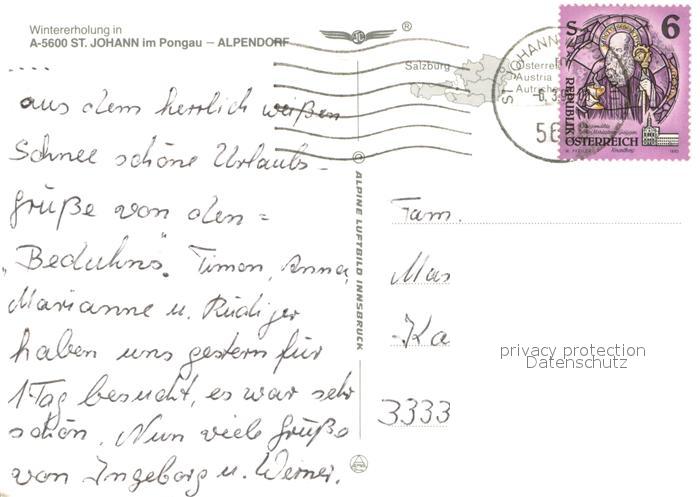 Wintererholung in
A-5600 ST. JOHANN im Pongau – ALPENDORF
....
aus dem herrlich weißen
Schnee schöne Urlaubs-
grüße von den =
„Beduhns". Timon, Anna,
Marianne u. Rüdiger
haben uns gestern für
1 Tag besucht, es war sehr
schön. Nun viele Grüße
von Ingeborg u. Werner.
®
Salzburg
Österreich
Austria
Autriche
ST. JOHANN
56
S 6
REPUBLIK
ÖSTERREICH
© ALPINE LUFTBILD INNSBRUCK
Fam.
Mas
Ka
3333
privacy protection
Datenschutz